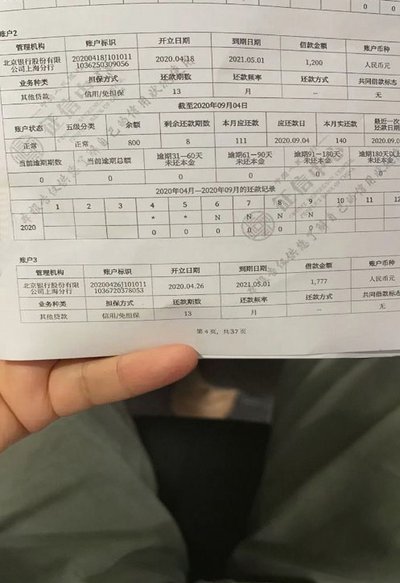 0 0 0 0 0
账户2
管理机构 账户标识 开立日期 到期日期 借款金额 账户币种
北京银行股份有限 20200418J101011 2020.04.18 2021.05.01 1,200 人民币元
公司上海分行 1036250309056
业务种类 担保方式 还款期数 还款频率 还款方式 共同借款标志
其他贷款 信用/免担保 13 月 -- 无
截至2020年09月04日
账户状态 五级分类 余额 剩余还款期数 本月应还款 应还款日 本月实还款 最近一次
还款日期
正常 正常 800 8 111 2020.09.04 140 2020.09.0
当前逾期期数 当前逾期总额 逾期31—60天 逾期61—90天 逾期91—180天 逾期180天以上
未还本金 未还本金 未还本金 未还本金
0 0 0 0 0 0
2020年04月—2020年09月的还款记录
1 2 3 4 5 6 7 8 9 10 11 12
2020 * * N N N N
0 0 0 0 0 0
账户3
管理机构 账户标识 开立日期 到期日期 借款金额 账户币种
北京银行股份有限 20200426J101011 2020.04.26 2021.05.01 1,777 人民币元
公司上海分行 1036720378053
业务种类 担保方式 还款期数 还款频率 还款方式 共同借款标志
其他贷款 信用/免担保 13 月 -- 无
第4页，共37页